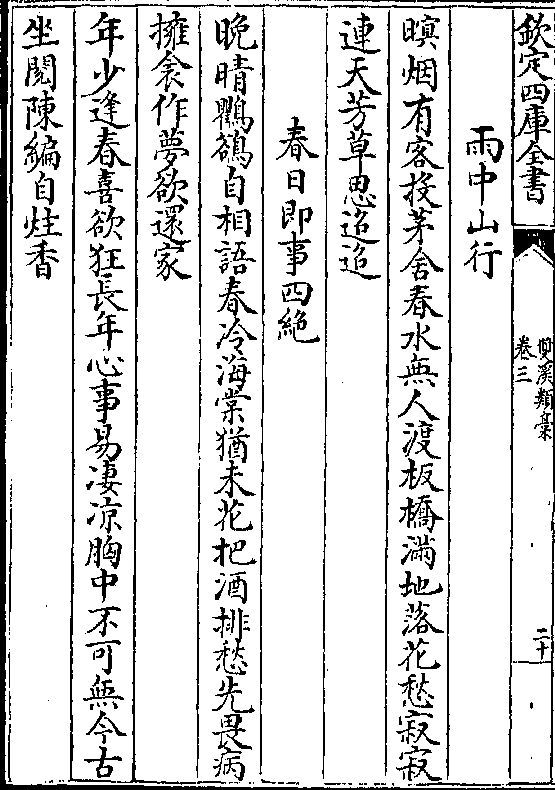 欽定四庫全書
雙溪類藁
卷三
二十
雨中山行
暝烟有客投茅舍春水無人渡板橋滿地落花愁寂寂
連天芳草思迢迢
春日即事四絶
晩晴鸜鵒自相語春冷海棠猶未花把酒排愁先畏病
擁衾作夢欲還家
年少逢春喜欲狂長年心事易凄凉胸中不可無今古
坐閱陳編自炷香